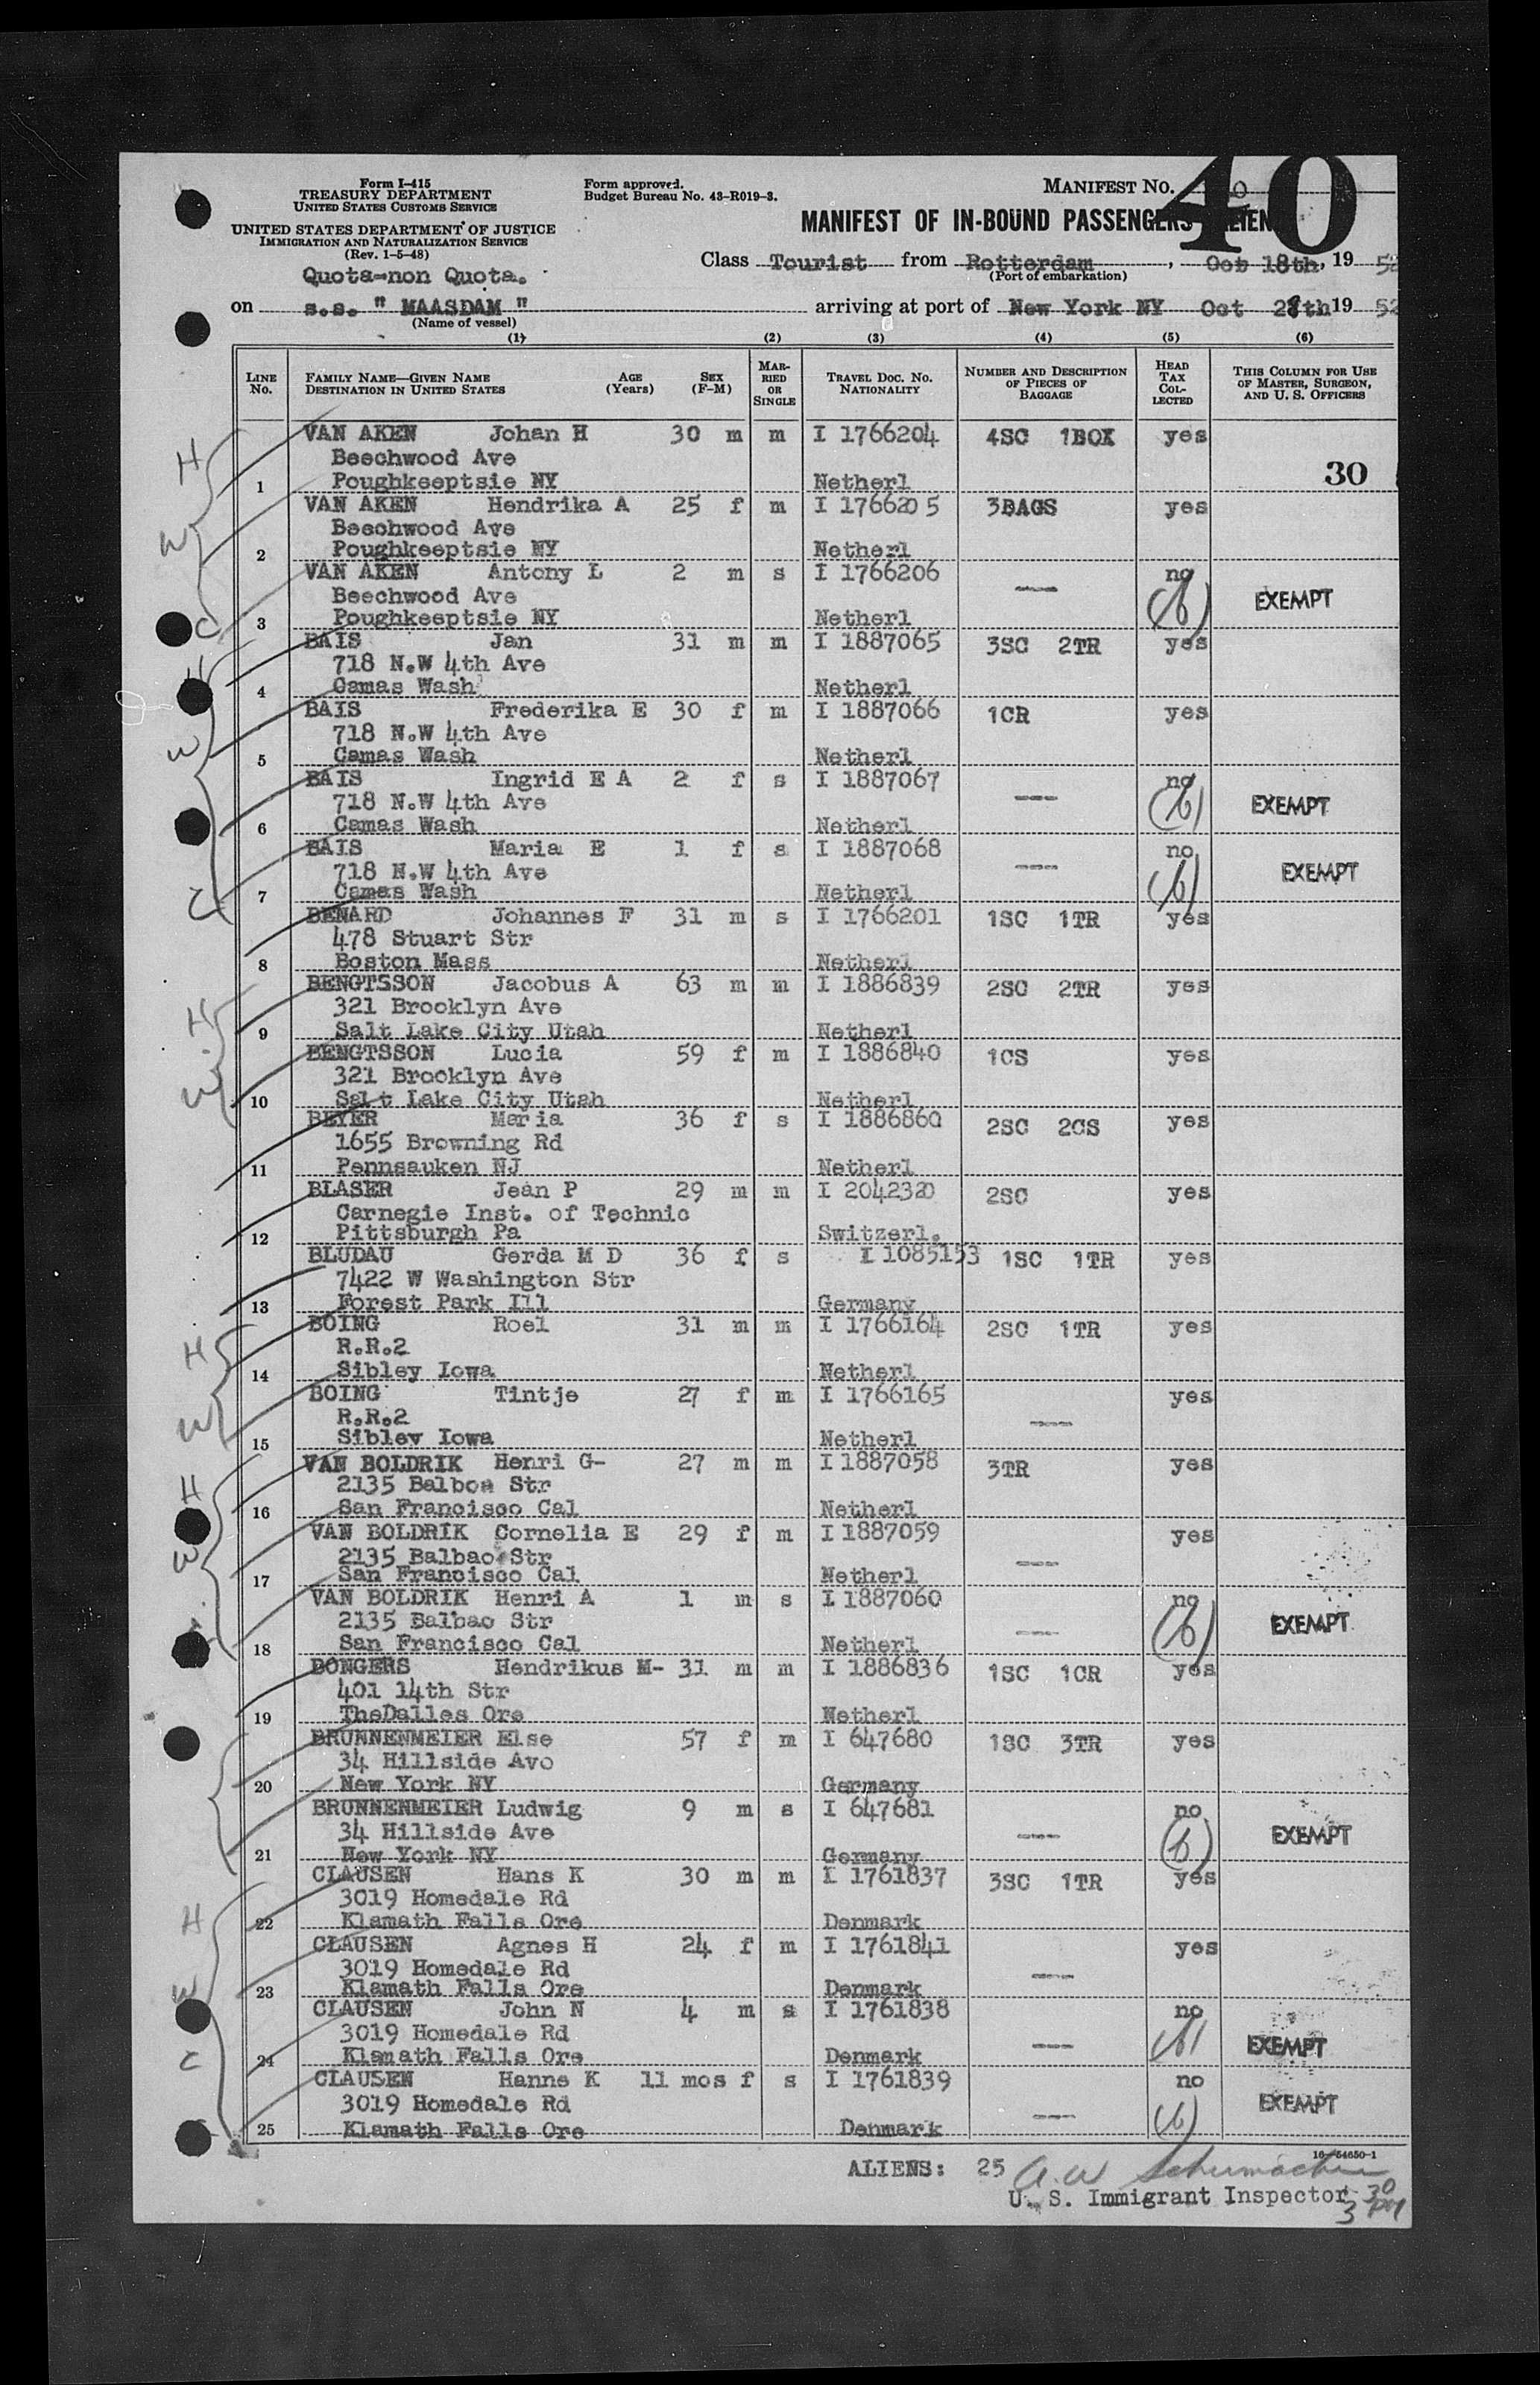 Form I-415
TREASURY DEPARTMENT
UNITED STATES CUSTOMS SERVICE
UNITED STATES DEPARTMENT OF JUSTICE
IMMIGRATION AND NATURALIZATION SERVICE
(Rev. 1-5-48)
Form approved.
Budget Bureau No. 43-R019-3.
MANIFEST NO.
40
MANIFEST OF IN-BOUND PASSENGERS
Quota-non Quota.
Class Tourist from Rotterdam, Oct 18th, 19 52
(Port of embarkation)
on s.s. " MAASDAM " arriving at port of New York NY Oct 28th 19 52
(Name of vessel)
(1) (2) (3) (4) (5) (6)
LINE No. FAMILY NAME—GIVEN NAME DESTINATION IN UNITED STATES AGE (Years) SEX (F-M) MARRIED OR SINGLE TRAVEL DOC. NO. NATIONALITY NUMBER AND DESCRIPTION OF PIECES OF BAGGAGE HEAD TAX COLLECTED THIS COLUMN FOR USE OF MASTER, SURGEON, AND U. S. OFFICERS
VAN AKEN Johan H 30 m m I 1766204 4SC 1BOX yes
Beechwood Ave
30
1 Poughkeeptsie NY Netherl
VAN AKEN Hendrika A 25 f m I 1766205 3BAGS yes
Beechwood Ave
2 Poughkeeptsie NY Netherl
VAN AKEN Antony L 2 m s I 1766206 --- no
Beechwood Ave EXEMPT
3 Poughkeeptsie NY Netherl
BAIS Jan 31 m m I 1887065 3SC 2TR yes
718 N.W 4th Ave
4 Camas Wash Netherl
BAIS Frederika E 30 f m I 1887066 1CR yes
718 N.W 4th Ave
5 Camas Wash Netherl
BAIS Ingrid E A 2 f s I 1887067 --- no
718 N.W 4th Ave EXEMPT
6 Camas Wash Netherl
BAIS Maria E 1 f s I 1887068 --- no
718 N.W 4th Ave EXEMPT
7 Camas Wash Netherl
BENARD Johannes F 31 m s I 1766201 1SC 1TR yes
478 Stuart Str
8 Boston Mass Netherl
BENGTSSON Jacobus A 63 m m I 1886839 2SC 2TR yes
321 Brooklyn Ave
9 Salt Lake City Utah Netherl
BENGTSSON Lucia 59 f m I 1886840 1CS yes
321 Brooklyn Ave
10 Salt Lake City Utah Netherl
BEYER Maria 36 f s I 1886860 2SC 2CS yes
1655 Browning Rd
11 Pennsauken NJ Netherl
BLASER Jean P 29 m m I 2042320 2SC yes
Carnegie Inst. of Technic
12 Pittsburgh Pa Switzerl.
BLUDAU Gerda M D 36 f s I 1085153 1SC 1TR yes
7422 W Washington Str
13 Forest Park Ill Germany
BOING Roel 31 m m I 1766164 2SC 1TR yes
R.R.2
14 Sibley Iowa Netherl
BOING Tintje 27 f m I 1766165 --- yes
R.R.2
15 Sibley Iowa Netherl
VAN BOLDRIK Henri G- 27 m m I 1887058 3TR yes
2135 Balboa Str
16 San Francisco Cal Netherl
VAN BOLDRIK Cornelia E 29 f m I 1887059 --- yes
2135 Balbao Str
17 San Francisco Cal Netherl
VAN BOLDRIK Henri A 1 m s I 1887060 --- no
2135 Balbao Str EXEMPT
18 San Francisco Cal Netherl
BONGERS Hendrikus M- 31 m m I 1886836 1SC 1CR yes
401 14th Str
19 TheDalles Ore Netherl
BRUNNENMEIER Else 57 f m I 647680 1SC 3TR yes
34 Hillside Avo
20 New York NY Germany
BRUNNENMEIER Ludwig 9 m s I 647681 --- no
34 Hillside Ave EXEMPT
21 New York NY Germany
CLAUSEN Hans K 30 m m I 1761837 3SC 1TR yes
3019 Homedale Rd
22 Klamath Falls Ore Denmark
CLAUSEN Agnes H 24 f m I 1761841 --- yes
3019 Homedale Rd
23 Klamath Falls Ore Denmark
CLAUSEN John N 4 m s I 1761838 --- no
3019 Homedale Rd EXEMPT
24 Klamath Falls Ore Denmark
CLAUSEN Hanne K 11 mos f s I 1761839 --- no
3019 Homedale Rd EXEMPT
25 Klamath Falls Ore Denmark
16-54650-1
ALIENS: 25 A.W Schumacher
U. S. Immigrant Inspector 3 30 PM